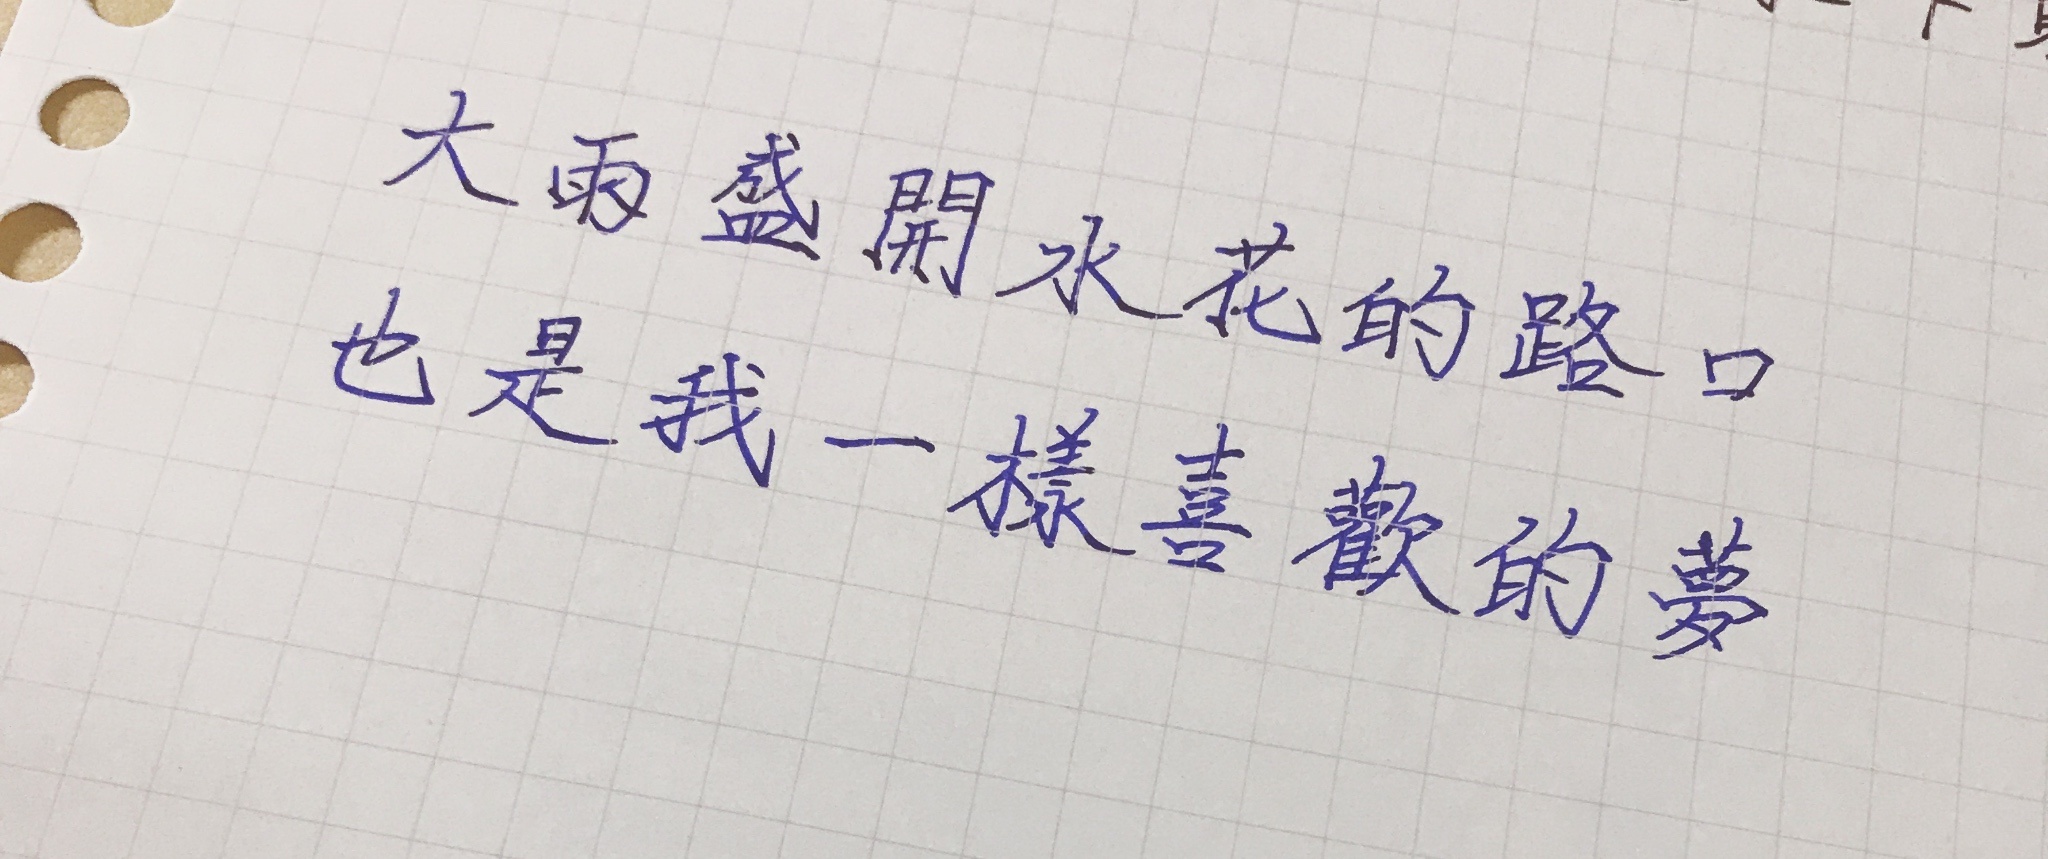 大雨盛開水花的路口
也是我一樣喜歡的夢